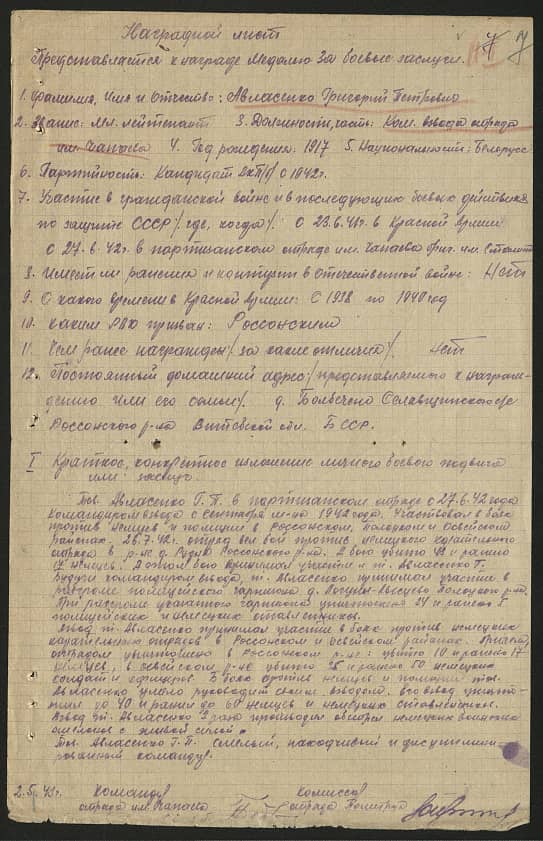 Наградной лист
7
Представляется к награде Медалью За боевые заслуги.
1. Фамилия, Имя и Отчество: Авласенко Григорий Петрович
2. Звание: Мл. лейтенант 3. Должность, часть: Ком. взвода отряда
им. Чапаева 4. Год рождения: 1917 5. Национальность: Белорусс
6. Партийность: Кандидат ВКП/б/ с 1942г.
7. Участие в гражданской войне и в последующих боевых действиях
по защите СССР /где, когда/: С 23.6.41г. в Красной Армии
С 27.6.42г. в партизанском отряде им. Чапаева бриг. им. Сталина
8. Имеет ли ранения и контузии в Отечественной войне: Нет
9. С какого времени в Красной Армии: С 1938 по 1940 год
10. Каким РВК призван: Россонским
11. Чем ранее награжден /за какие отличия/. Нет
12. Постоянный домашний адрес /представляемого к награж-
дению или его семьи/. д. Россонского р-на Витебской обл. БССР.
I Краткое, конкретное изложение личного боевого подвига
или заслуг.
Тов. Авласенко Г.П. в партизанском отряде с 27.6.42 года
Командиром взвода с сентября м-ца 1942 года. Участвовал в боях
против немцев и полиции в Россонском, Полоцком и Освейском
районах. 26.7.42г. отряд вел бой против немецкого карательного
отряда в р-не д. Рудня Россонского р-на. В бою убито и ранено
17 немцев. В этом бою принимал участие и т. Авласенко Г.
Будучи командиром взвода, т. Авласенко принимал участие в
разгроме полицейского гарнизона д. Полоцкого р-на.
При разгроме указанного гарнизона уничтожено 24 и ранено 5
полицейских и немецких ставленников.
Взвод т. Авласенко принимал участие в боях против немецких
карательных отрядов в Россонском и Освейском районах.
отрядом уничтожено в Россонском р-не: убито 10 и ранено 17
немцев, в Освейском р-не убито 35 и ранено 50 немецких
солдат и офицеров. В боях против немцев и полиции тов.
Авласенко умело руководит своим взводом. Его взвод уничто-
жил до 40 и ранил до 60 немцев и немецких ставленников.
Взвод т. Авласенко 2 раза производил обстрел немецких
эшелонов с живой силой.
Тов. Авласенко Г.П. смелый, находчивый и дисциплини-
рованный командир.
2.5.43г. Командир Комиссар
отряда им. Чапаева отряда Политрук